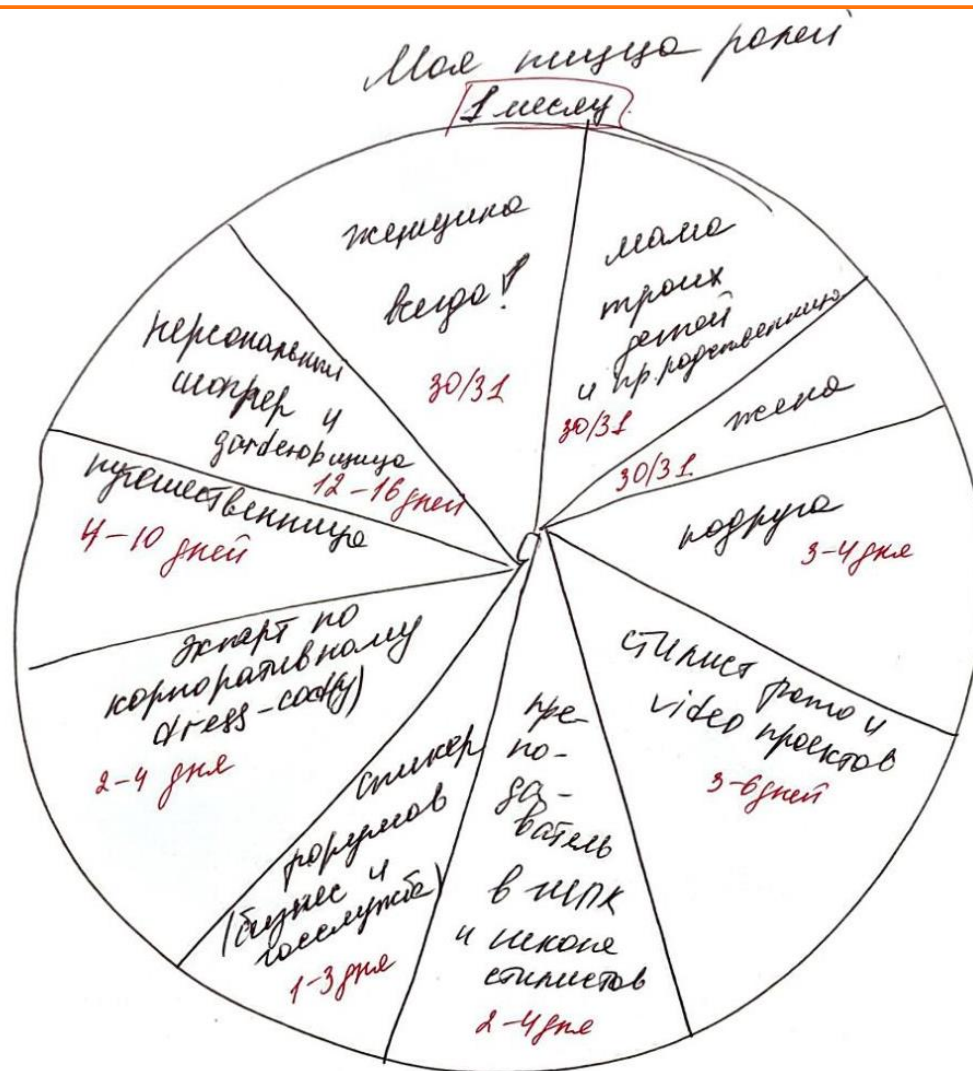 Моя пицца ролей
1 месяц
женщина
всегда!
30/31
мама
троих
детей
и пр. родственники
30/31
жена
30/31
подруга
3-4 дня
стилист фото и
video проектов
3-6 дней
пре-
по-
да-
ватель
в ШПК
и школе
стилистов
2-4 дня
спикер
форумов
(бизнес и
госслужба)
1-3 дня
эксперт по
корпоративному
dress-code(у)
2-4 дня
путешественница
4-10 дней
персональный
шоппер и
гардеробщица
12-16 дней